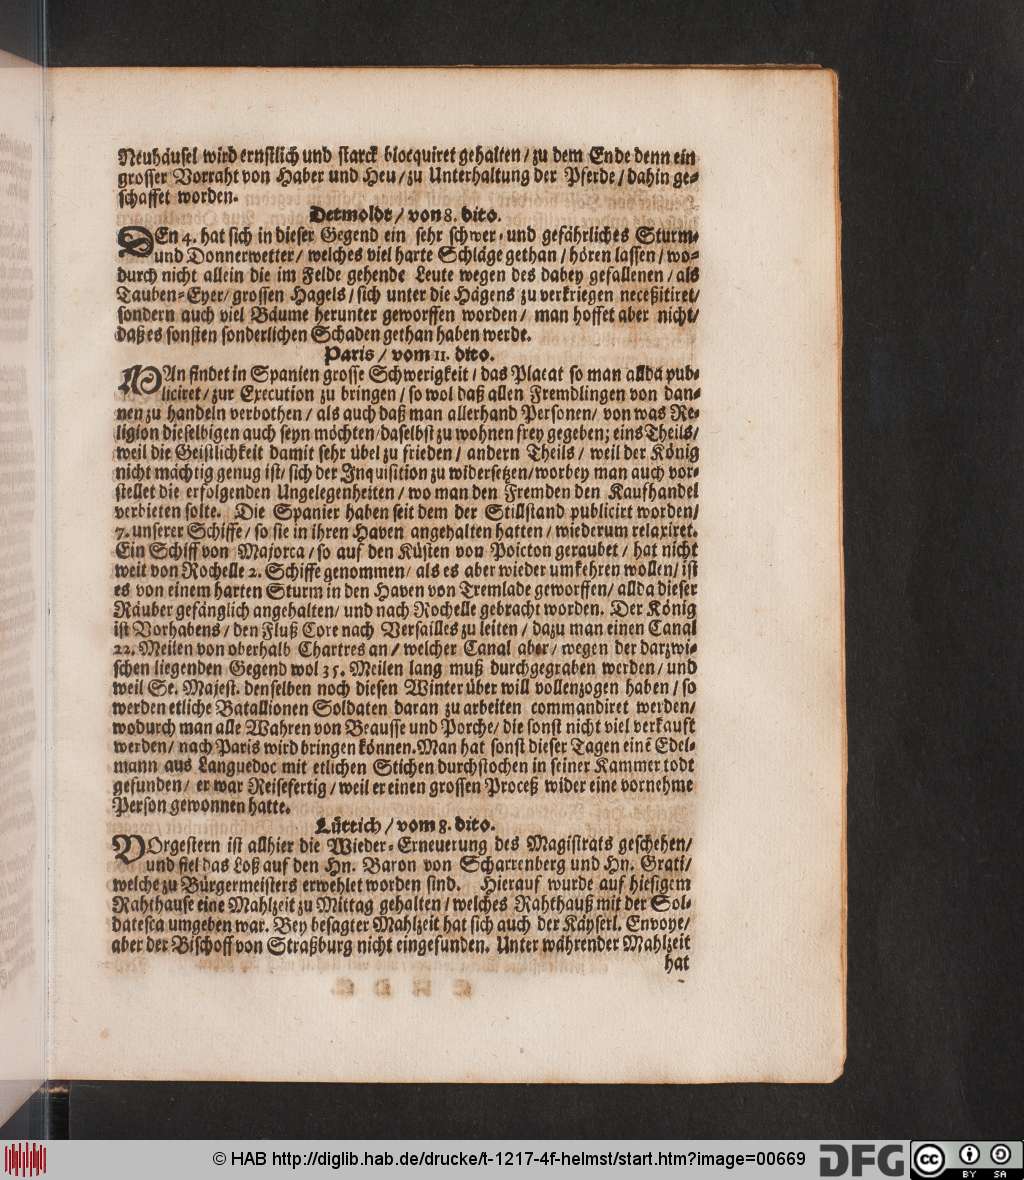 Neuhäusel wird ernstlich und starck blocquiret gehalten/ zu dem Ende denn ein
grosser Vorraht von Haber und Heu/ zu Unterhaltung der Pferde/ dahin ge-
schaffet worden.
Detmoldt/ von 8. dito.
DEn 4. hat sich in dieser Gegend ein sehr schwer- und gefährliches Sturm-
und Donnerwetter/ welches viel harte Schläge gethan/ hören lassen/ wo-
durch nicht allein die im Felde gehende Leute wegen des dabey gefallenen/ als
Tauben-Eyer/ grossen Hagels/ sich unter die Hägens zu verkriegen neceßitiret/
sondern auch viel Bäume herunter geworffen worden/ man hoffet aber nicht/
daß es sonsten sonderlichen Schaden gethan haben werde.
Paris/ vom 11. dito.
MAn findet in Spanien grosse Schwerigkeit/ das Placat so man allda pub-
liciret/ zur Execution zu bringen/ so wol daß allen Fremdlingen von dan-
nen zu handeln verbothen/ als auch daß man allerhand Personen/ von was Re-
ligion dieselbigen auch seyn möchten/ daselbst zu wohnen frey gegeben; eins Theils/
weil die Geistlichkeit damit sehr übel zu frieden/ andern Theils/ weil der König
nicht mächtig genug ist/ sich der Inquisition zu widersetzen/ worbey man auch vor-
stellet die erfolgenden Ungelegenheiten/ wo man den Fremden den Kaufhandel
verbieten solte. Die Spanier haben seit dem der Stillstand publicirt worden/
7. unserer Schiffe/ so sie in ihren Haven angehalten hatten/ wiederum relaxiret.
Ein Schiff von Majorca/ so auf den Küsten von Poicton geraubet/ hat nicht
weit von Rochelle 2. Schiffe genommen/ als es aber wieder umkehren wollen/ ist
es von einem harten Sturm in den Haven von Tremlade geworffen/ allda dieser
Räuber gefänglich angehalten/ und nach Rochelle gebracht worden. Der König
ist Vorhabens/ den Fluß Core nach Versailles zu leiten/ dazu man einen Canal
22. Meilen von oberhalb Chartres an/ welcher Canal aber/ wegen der darzwi-
schen liegenden Gegend wol 35. Meilen lang muß durchgegraben werden/ und
weil Se. Majest. denselben noch diesen Winter über will vollenzogen haben/ so
werden etliche Batallionen Soldaten daran zu arbeiten commandiret werden/
wodurch man alle Wahren von Beausse und Porche/ die sonst nicht viel verkauft
werden/ nach Paris wird bringen können. Man hat sonst dieser Tagen einē Edel-
mann aus Languedoc mit etlichen Stichen durchstochen in seiner Kammer todt
gefunden/ er war Reisefertig/ weil er einen grossen Proceß wider eine vornehme
Person gewonnen hatte.
Lüttich/ vom 8. dito.
VOrgestern ist allhier die Wieder-Erneuerung des Magistrats geschehen/
und fiel das Loß auf den Hn. Baron von Scharrenberg und Hn. Grati/
welche zu Bürgermeisters erwehlet worden sind. Hierauf wurde auf hiesigem
Rahthause eine Mahlzeit zu Mittag gehalten/ welches Rahthauß mit der Sol-
datesca umgeben war. Bey besagter Mahlzeit hat sich auch der Käyserl. Envoye/
aber der Bischoff von Straßburg nicht eingefunden. Unter währender Mahlzeit
hat
© HAB http://diglib.hab.de/drucke/t-1217-4f-helmst/start.htm?image=00669
DFG
cc
BY SA